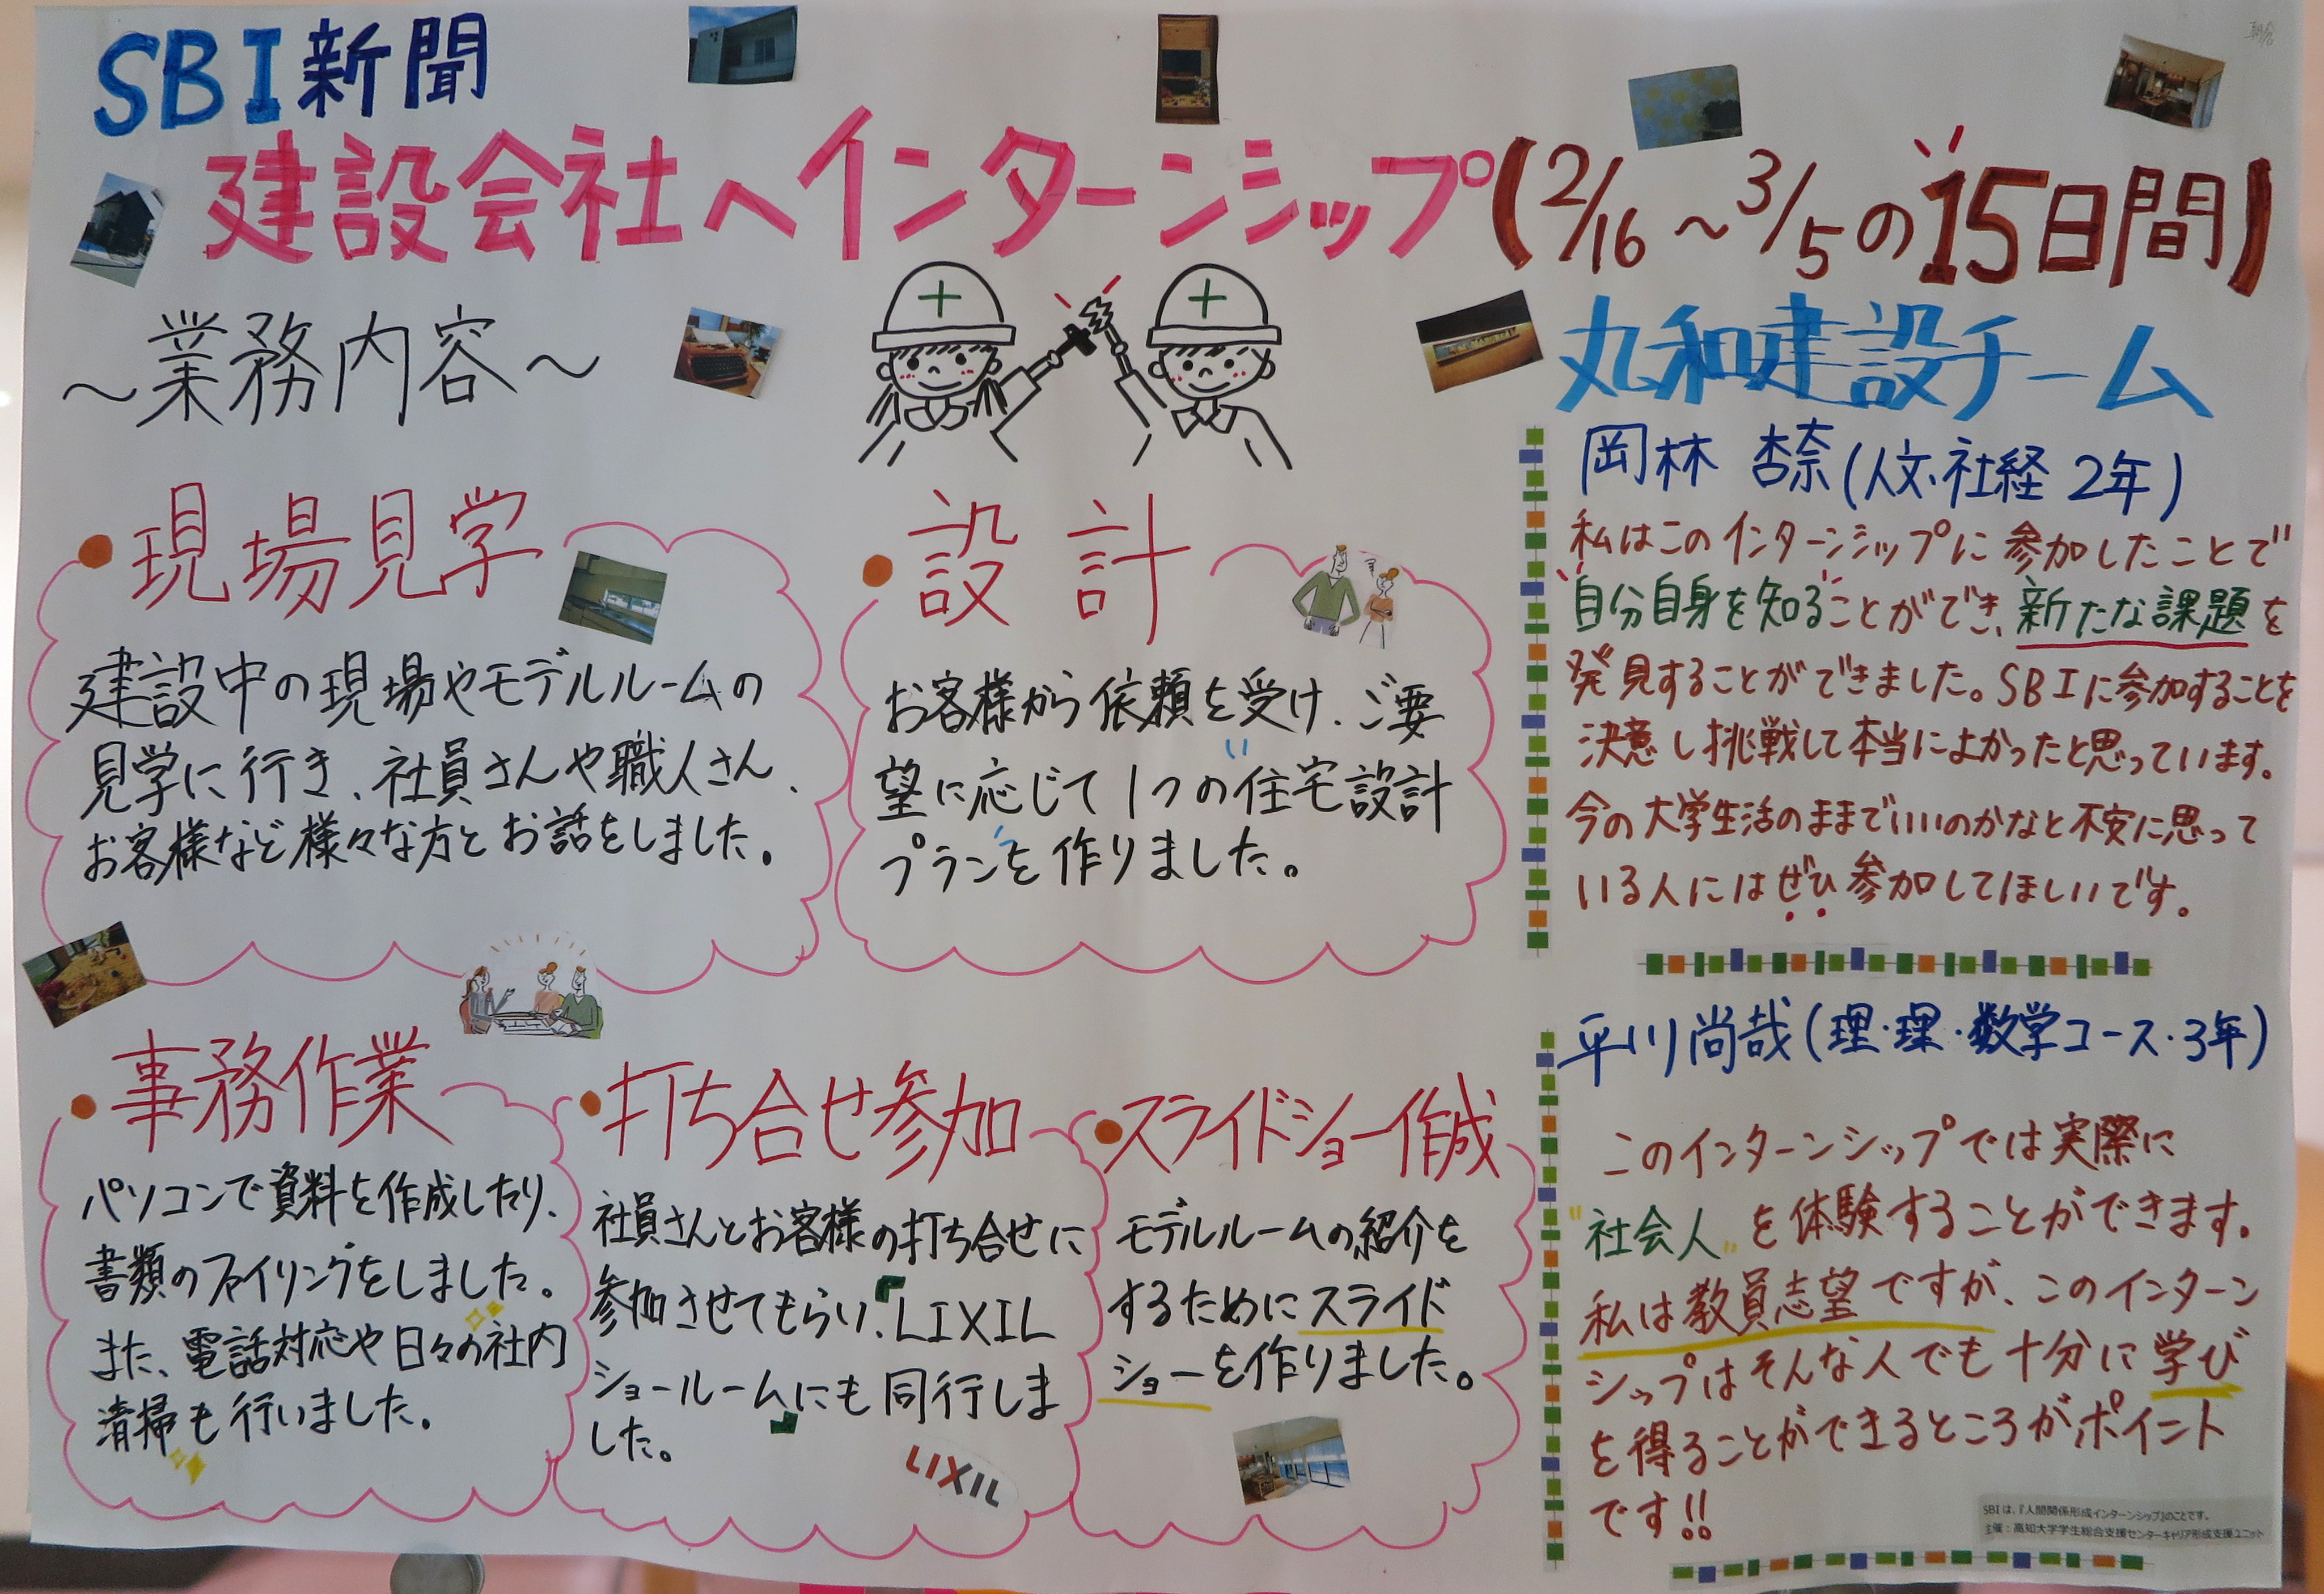 SBI新聞
建設会社へインターンシップ(2/16～3/5の15日間)
～業務内容～
・現場見学
建設中の現場やモデルルームの
見学に行き、社員さんや職人さん、
お客様など様々な方とお話をしました。
・設計
お客様から依頼を受け、ご要
望に応じて1つの住宅設計
プランを作りました。
・事務作業
パソコンで資料を作成したり、
書類のファイリングをしました。
また、電話対応や日々の社内
清掃も行いました。
・打ち合せ参加
社員さんとお客様の打ち合せに
参加させてもらい、LIXIL
ショールームにも同行しま
した。
LIXIL
・スライドショー作成
モデルルームの紹介を
するためにスライド
ショーを作りました。
丸和建設チーム
岡林 杏奈(人文・社経 2年)
私はこのインターンシップに参加したことで
"自分自身を知る"ことができ、新たな課題を
発見することができました。SBIに参加することを
決意し挑戦して本当によかったと思っています。
今の大学生活のままでいいのかなと不安に思って
いる人にはぜひ参加してほしいです。
平川尚哉(理・理・数学コース・3年)
このインターンシップでは実際に
"社会人"を体験することができます。
私は教員志望ですが、このインターン
シップはそんな人でも十分に学び
を得ることができるところがポイント
です!!
SBIは、『人間関係形成インターンシップ』のことです。
主催：高知大学学生総合支援センターキャリア形成支援ユニット